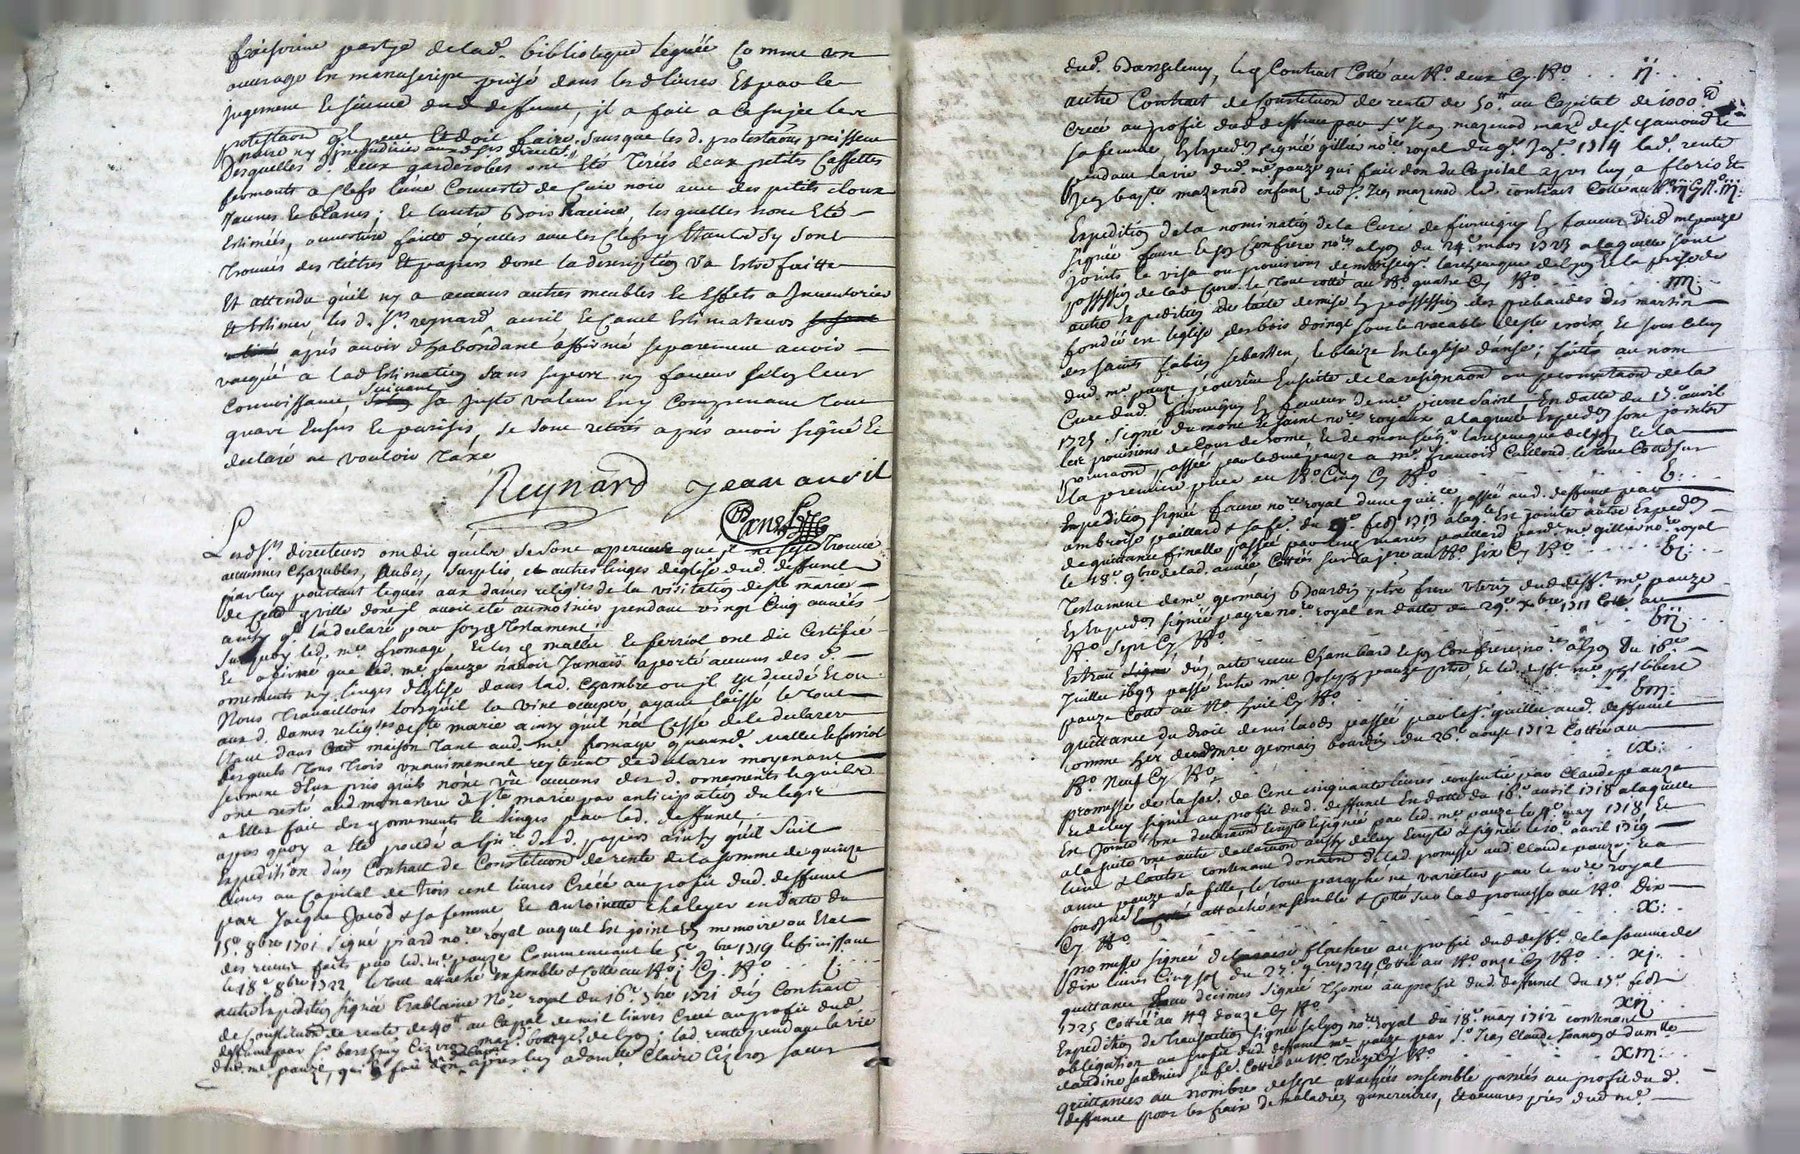 partye de lad. biblioteque leguée Comme un
ouvrage en manuscript prisé dans lesd livres Et par le
Jugement Et science dud deffunt, il a fait a ce sujet les
protestaons ql peut Et doit faire, sans que les d. protestaons puissent
nuire ny prejudicier aux
Desquelles d. deux garderobes ont Eté Tirées deux petites Cassettes
fermants a Clefs l'une Couverte de Cuir noir avec des petits cloux
Jaunes Et blancs; Et l'autre Bois racine, lesquelles n'ont Eté
Estimées, ouverture faitte d'ycelles avec les Clefs y Etants sy sont
trouvés des tiltres Et papiers dont la description va Estre faitte
Et attendu qu'il ny a aucuns autres meubles Et Effets a Inventorier
Et Estimer, les d. Srs reynard, avril Et Canel Estimateurs
après avoir d'habondant affirmé separement avoir
vacqué a lad Estimation sans support ny faveur selon leur
connoissance suivant sa juste valeur En y Comprenant tout
quart Ensus Et parisis, se sont retirés après avoir signé Et
declaré ne vouloir taxe
Reynard Jean avril
Canel
Lesd Srs directeurs ont dit qu'ils se sont apperceus que il ne s'est trouvé
aucunnes Chazubles, Aubes, Surplis, et autres linges d'eglise dud. deffunt
par luy pourtant legués aux dames religses de la visitation de Ste marie
de cette ville dont il avoit été aumosnier pendant vingt Cinq années
ainsy ql l'a declaré par son Testament
Sur quoy led. mre fromage, Et les mallet Et ferriol ont dit Certifié
Et affirmé que led. me pauze n'avoir Jamais aporté aucuns des d.
ornements ny linges d'Eglise dans lad. Chambre ou il est decedé Et ou
Nous Travaillons lorsqu'il la vint occuper, ayant laissé le tout
aux d. dames religses de ste marie ainsy qu'il n'a Cessé de le declarer
Etant dans lad maison tant aud. me fromage quauxd. mallet Et ferriol
lesquels tous trois unanimement reyterent de declarer moyenant
serment d'Eux pris qu'ils n'ont vu aucuns des d. ornements lesquels
ont resté aud monastere de ste marie par anticipation du legs
a Elles fait des ornements Et linges par led. deffunt
apres quoy a Eté procedé a des d. papiers ainsy qu'il suit
Expedition d'un Contract de Constitution de rente de la somme de quinze
livres au Capital de trois cent livres Créée au profit dud. deffunt
par Jacque Jacod & sa femme Et antoinette chaleyer en datte du
15e 8bre 1701 signé piard nore royal auquel Est joint un memoire ou Etat
des recus faits par led. me pauze Commencant le 5e 9bre 1719 Et finissant
le 18e 8bre 1722 le tout attaché ensemble & Cotté au No; Cy. No . . . i . . .
autre Expedition signée Trablaine Nore royal du 16e 9bre 1721 d'un Contract
de Constitution de rente de 40tt au Capital de mil livres Creé au profit dud
deffunt par sr barthelmy Cizeron mar. bourgs. de lyon; lad. rente pendant la vie
dud. me pauze, qui a fait don du capal apres luy a demlle Claire Cizeron
dud. Barthelemy, led Contract Cotté au No. deux Cy. No . . . ii . . .
autre Contract de Constitution de rente de 50tt au Capital de 1000tt
creé au profit dud deffunt par Sr Jean mazenod mard de st chamond Et
sa femme, Expedon signée gillier nore royal du 9e 1714 lad. rente
pendant la vie dud. me pauze qui fait don du Capital apres luy a floris Et
Jean bapte mazenod enfans dud. sr Jean mazenod led. contract Cotté au No. iii Cy No. iii.
Expedition de la nomination de la Cure de En faveur dud me pauze
signée faure Et son Confrere nores a lyon du 24e mars 1723 a laquelle sont
joints le visa ou provisions de monseigr l'archeveque de lyon Et la prise de
possession de lad Cure le tout cotté au No quatre Cy No . . . iiii . . .
autre Expedition de l'acte de mise En possession des prebandes des martin
fondée en l'eglise des bois d'oingt sous le vocable de ste croix Et sous Celuy
des saints fabien sebastien, Et blaize En leglise d'anse; faitte au nom
dud. me pauze Ensuite de la resignaon ou permutaon de la
Cure dud. En faveur de me pierre saint En datte du 13e avril
1725 signée dumont Et saint nores royaux a laquelle Expedon sont jointes
les provisions de Cour de rome Et de monseigr l'archeveque de lyon Et la
procuraon passée par led me pauze a me francois Caillond le tout Cotté sur
la premiere piece au No. Cinq Cy No . . . v. . .
Expedition signée faure nore royal d'une quitce passée aud. deffunt par
ambroise paillard & sa fe du 9e febr 1713 a laqle Est jointe autre Expedon
de quittance finalle passée par led maries paillard pardt me gillier nore royal
le 18e 9bre de lad. année Cottés sur la 1ere au No. six Cy No . . . vi . . .
Testament de me germain Bourdin ptre frere Uterin dud defft me pauze
Expedon signée peyre nore royal en datte du 29e xbre 1711 Cotté au
No. Sept Cy No . . . vii . . .
Extrait d'un acte receu Chambard Et son Confrere nores a lyon du 16e
Juillet 1693 passé Entre mre Joseph pauze ptre Et led. defft mre philibert
pauze Cotté au No. huit Cy No . . . viii . . .
quittance du droit de milaods passée par le sr quillet aud. deffunt
comme her. dud mre germain bourdin du 26e aoust 1712 Cottée au
No. Neuf Cy No . . . ix . . .
promesse de la soe. de Cent cinquante livres consentie par Claude pauze
Et de luy signée au profit dud. deffunt En datte du 16e avril 1718 a laquelle
Est jointe une declaraon Ecrite & signée par led. me pauze le 4e may 1718 Et
a la suite une autre declaraon aussy de luy Ecrite & signée le 10e avril 1719
l'une & l'autre contenant donaon de lad promesse aud Claude pauze Et a
anne pauze sa fille, le tout paraphé ne varietur par le nore royal
soussigné attaché ensemble & Cotté sur lad promesse au No. Dix
Cy No . . . x. . .
promesse signée flachere au profit dud deffs. de la somme de
dix livres Cinq sol du 27e 9bre 1724 Cottée au No. onze Cy No . . . xi . . .
quittance pour decimes signée Thome au profit dud. deffunt du 15e febr
1725 Cottée au No douze Cy No . . . xii . . .
Expedition de transaction signée nore royal du 18e may 1712 contenant
obligation au profit dud deffunt me pauze par sr Jean Claude & dam lle
claudine sa fe. Cottée au No. Treize Cy No . . . xiii . . .
quittances au nombre de sept attachées ensemble passées au profit dud.
deffunt pour les frais de maladies funeraires, Et aeuvres pies dud me